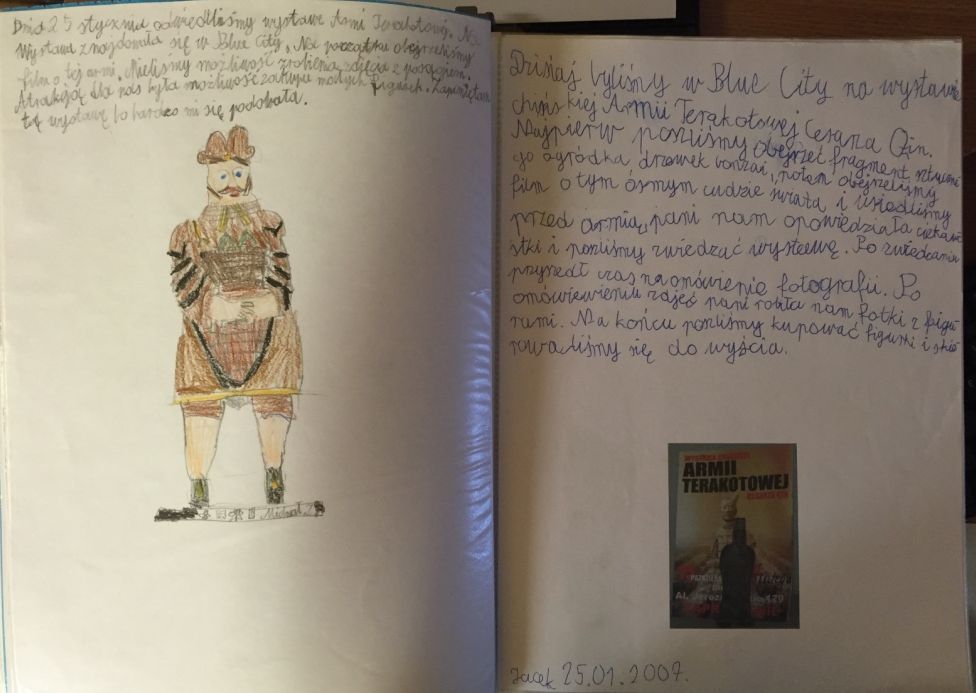 Dnia 25 stycznia odwiedliśmy wystawe Armi Terakotowej. Na
Wystawa znajdowała się w Blue City. Na początku obejrzeliśmy
film o tej armi. Mieliśmy możliwość zrobienia zdjęcia z posągiem.
Atrakcją dla nas była możliwość zakupu małych figurek. Zapamiętam
tę wystawę bo bardzo mi się podobała.
Michał Z
Dzisiaj byliśmy w Blue City na wystawie
chińskiej Armii Terakotowej Cesarza Qin.
Najpierw poszliśmy obejrzeć fragment sztuczne
go ogródka drzewek bonzai, potem obejrzeliśmy
film o tym ósmym cudzie świata i usiedliśmy
przed armią, pani nam opowiedziała ciekawo
stki i poszliśmy zwiedzać wystawę. Po zwiedzaniu
przyszedł czas na omówienie fotografii. Po
omówiewieniu zdjęć pani robiła nam fotki z figu
rami. Na końcu poszliśmy kupować figurki i skie
rowaliśmy się do wyścia.
ARMII
TERAKOTOWEJ
Jacek 25.01.2007.